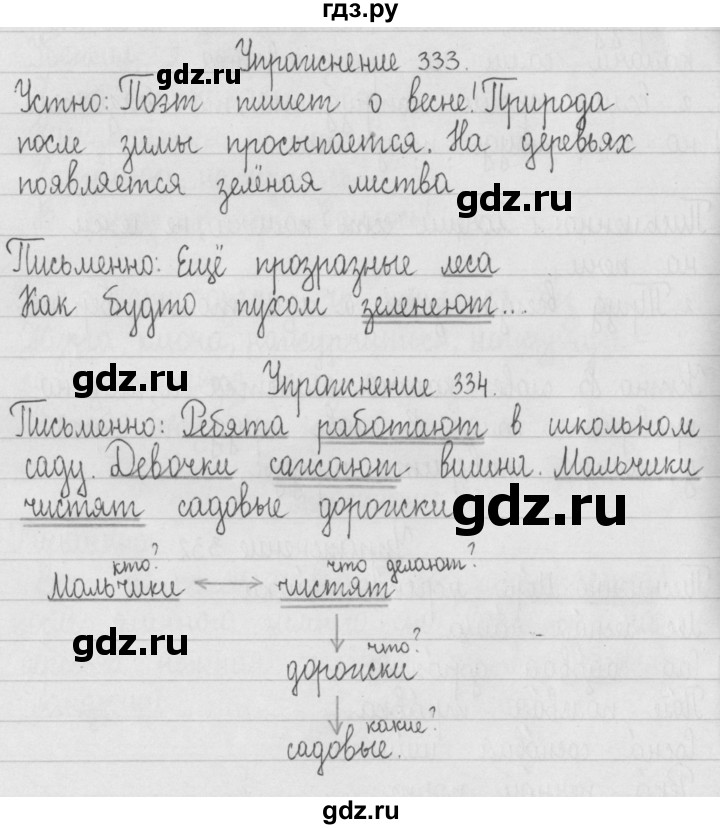 гдз.ру
Упражнение 333.
gdz.ru
Устно: Поэт пишет о весне! Природа
после зимы просыпается. На деревьях
появляется зелёная листва
gdz.ru
Письменно: Ещё прозразные леса
Как будто пухом зеленеют...
gdz.ru
Упражнение 334.
Письменно: Ребята работают в школьном
саду. Девочки сажают вишни. Мальчики
чистят садовые дорожки
gdz.ru
кто? что делают?
Мальчики чистят
gdz.ru
что?
дорожки
какие?
садовые.
gdz.ru